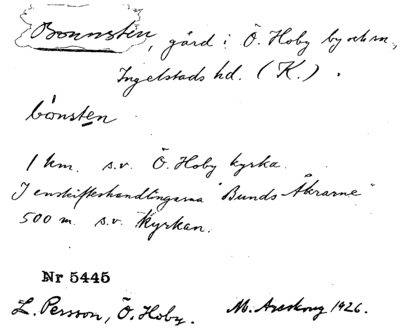 Bonnsten, gård i Ö. Hoby by och sn,
Ingelstads hd. (K.).
bònsten
1 km. s.v. Ö. Hoby kyrka.
I enskifteshandlingarna "Bunds Åkrarne"
500 m. s.v. kyrkan.
Nr 5445
L. Persson, Ö. Hoby. M. Areskoug 1926.